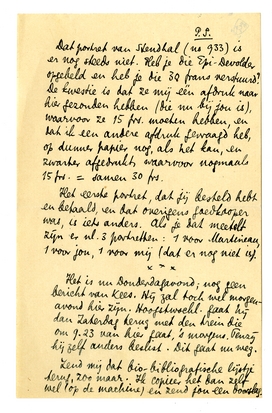 P.S.
Dat portret van Stendhal (no 933) is
er nog steeds niet. Heb je die Epi-Devolder
opgebeld en heb je die 30 frans verstuurd?
De kwestie is dat ze mij één afdruk naar
hier gezonden hebben (die nu bij jou is),
waarvoor ze 15 frs. moeten hebben, en
dat ik een andere afdruk gevraagd heb,
op dunner papier nog, als het kan, en
zwarter afgedrukt waarvoor nogmaals
15 frs. = samen 30 frs.
Het eerste portret, dat jij besteld hebt
en betaald, en dat overigens goedkooper
was, is iets anders. Als je dat meetelt
zijn er nl. 3 portretten: 1 voor Martineau,
1 voor jou, 1 voor mij (dat er nog niet is).
* * *
Het is nu Donderdagavond; nog geen
bericht van Kees. Hij zal toch wel morgen-
avond hier zijn. Hoogstwschl. gaat hij
dan Zaterdag terug met den trein die
om 9.23 van hier gaat, 's morgens. Tenzij
hij zelf anders beslist. Dit gaat nu weg.
Zend mij dat bio-bibliografische lijstje
terug, zoo maar. Ik copieer het dan zelf
wel (op de machine) en zend jou een doorslag.